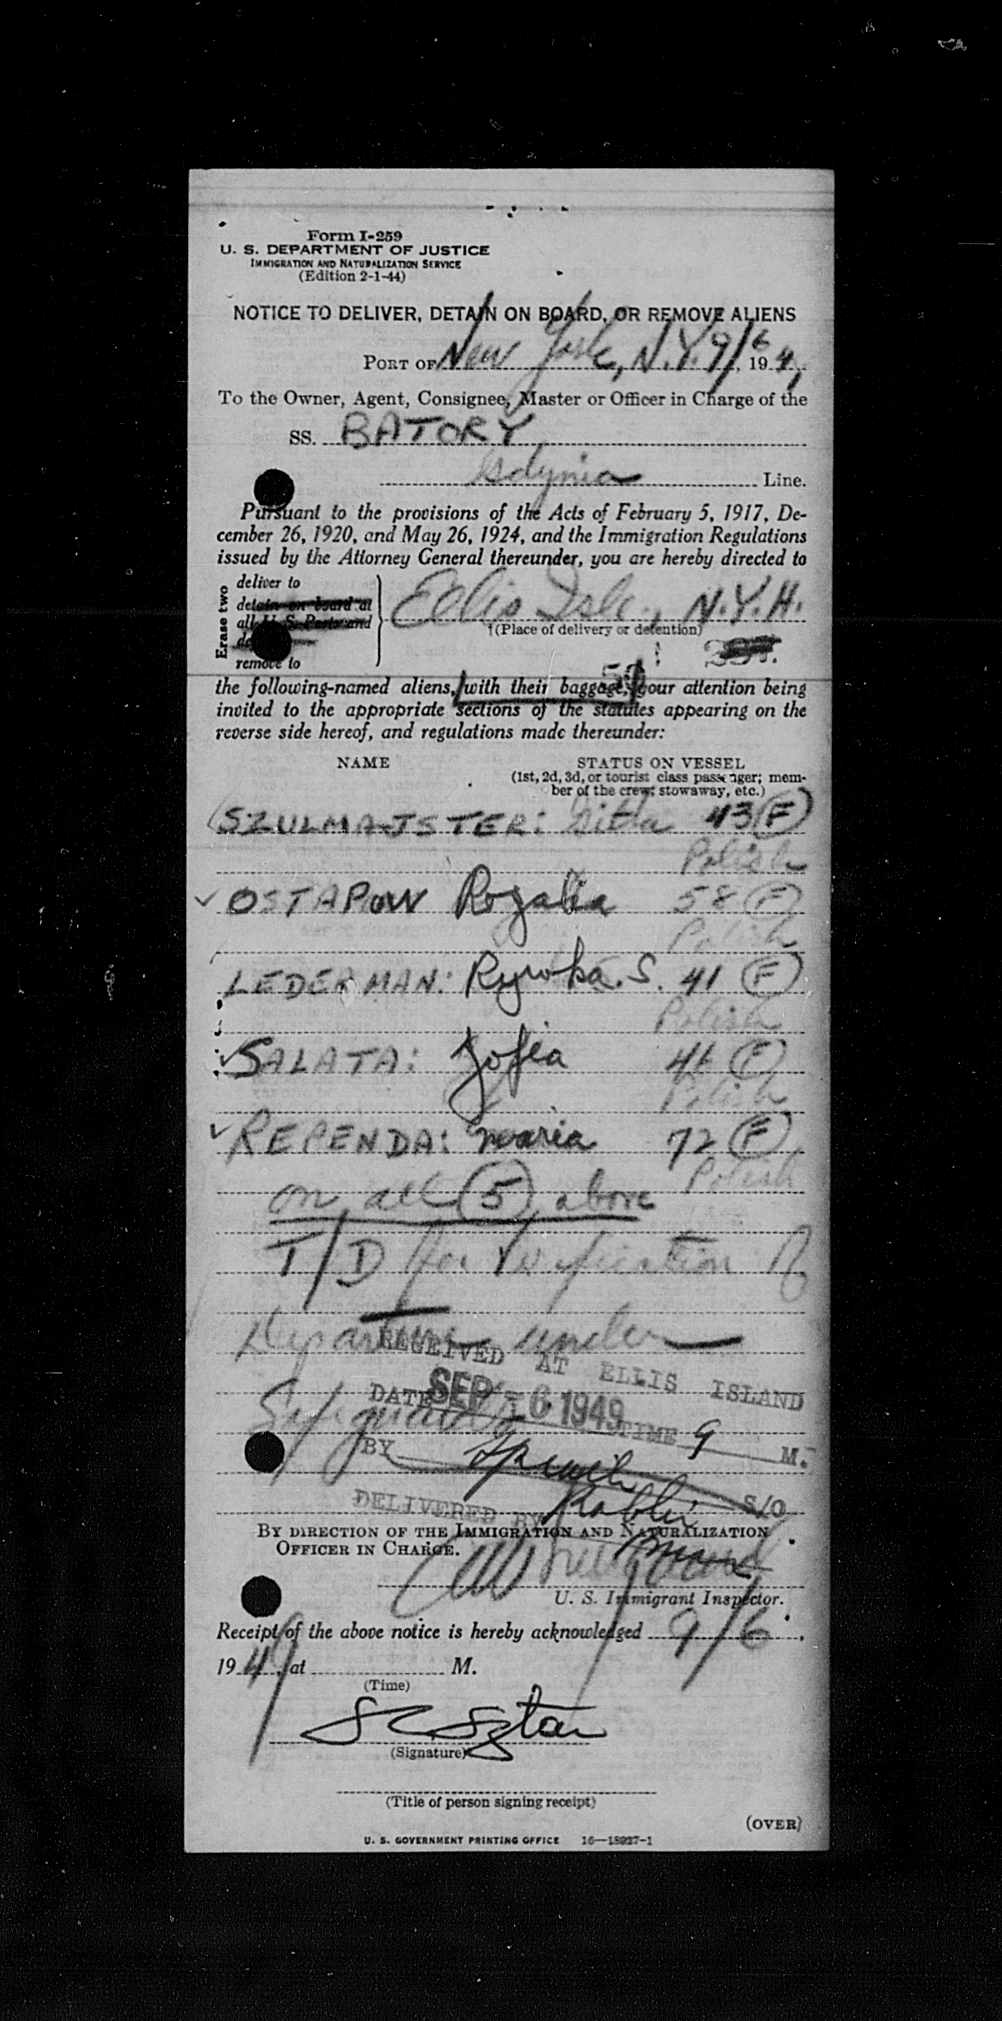 Form I-259
U. S. DEPARTMENT OF JUSTICE
IMMIGRATION AND NATURALIZATION SERVICE
(Edition 2-1-44)
NOTICE TO DELIVER, DETAIN ON BOARD, OR REMOVE ALIENS
PORT OF New York, N.Y. 9/6, 194
To the Owner, Agent, Consignee, Master or Officer in Charge of the
SS. BATORY
Gdynia Line.
Pursuant to the provisions of the Acts of February 5, 1917, De-
cember 26, 1920, and May 26, 1924, and the Immigration Regulations
issued by the Attorney General thereunder, you are hereby directed to
Erase two
deliver to
detain on board at
all U. S. Ports and
remove to
Ellis Isle., N.Y.H.
(Place of delivery or detention)
the following-named aliens, with their baggage, your attention being
invited to the appropriate sections of the statutes appearing on the
reverse side hereof, and regulations made thereunder:
NAME STATUS ON VESSEL
(1st, 2d, 3d, or tourist class passenger; mem-
ber of the crew; stowaway, etc.)
SZULMAJSTER: Gitla 43 (F)
Polish
✓ OSTAPOW Rozalia 58 (F)
Polish
LEDERMAN: Rywka. S. 41 (F)
Polish
✓ SALATA: Zofia 46 (F)
Polish
✓ REPENDA: Maria 72 (F)
Polish
on all (5) above
T/D for Verification of
Departure under
Safeguards
RECEIVED AT ELLIS ISLAND
DATE SEP -6 1949 TIME 9 M.
BY
S/O
DELIVERED BY
BY DIRECTION OF THE IMMIGRATION AND NATURALIZATION
OFFICER IN CHARGE.
U. S. Immigrant Inspector.
Receipt of the above notice is hereby acknowledged 9/6,
1949, at M.
(Time)
(Signature)
(Title of person signing receipt)
(OVER)
U. S. GOVERNMENT PRINTING OFFICE 16—18927-1